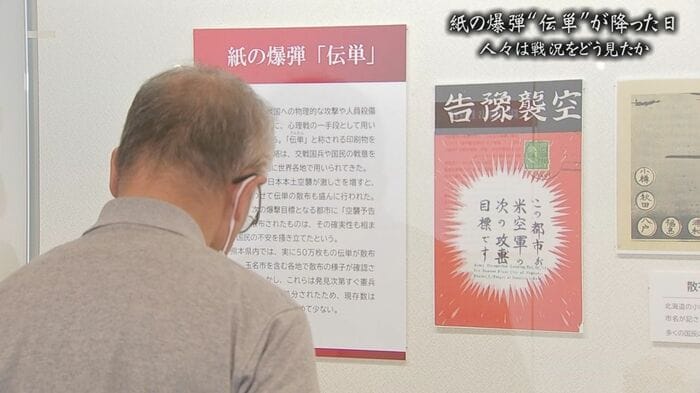 紙の爆弾“伝単”が降った日
人々は戦況をどう見たか
紙の爆弾「伝単」
国への物理的な攻撃や人員殺傷
に、心理戦の一手段として用い
と称される印刷物を
、交戦国兵や国民の戦意を
に世界各地で用いられてきた。
日本本土空襲が激しさを増すと、
せて伝単の散布も盛んに行われた。
次の爆撃目標となる都市に「空襲予告
布されたものは、その確実性も相ま
国民の不安を掻き立てたという。
熊本県内では、実に50万枚もの伝単が散布
玉名市を含む各地で散布の様子が確認さ
かし、これらは発見次第すぐ憲兵
処分されたため、現存数は
めて少ない。
告豫襲空
この都市が
米空軍の
次の攻撃
目標です
小樽
秋田
八戸
福島
散
北海道の小
市名が記さ
多くの国民